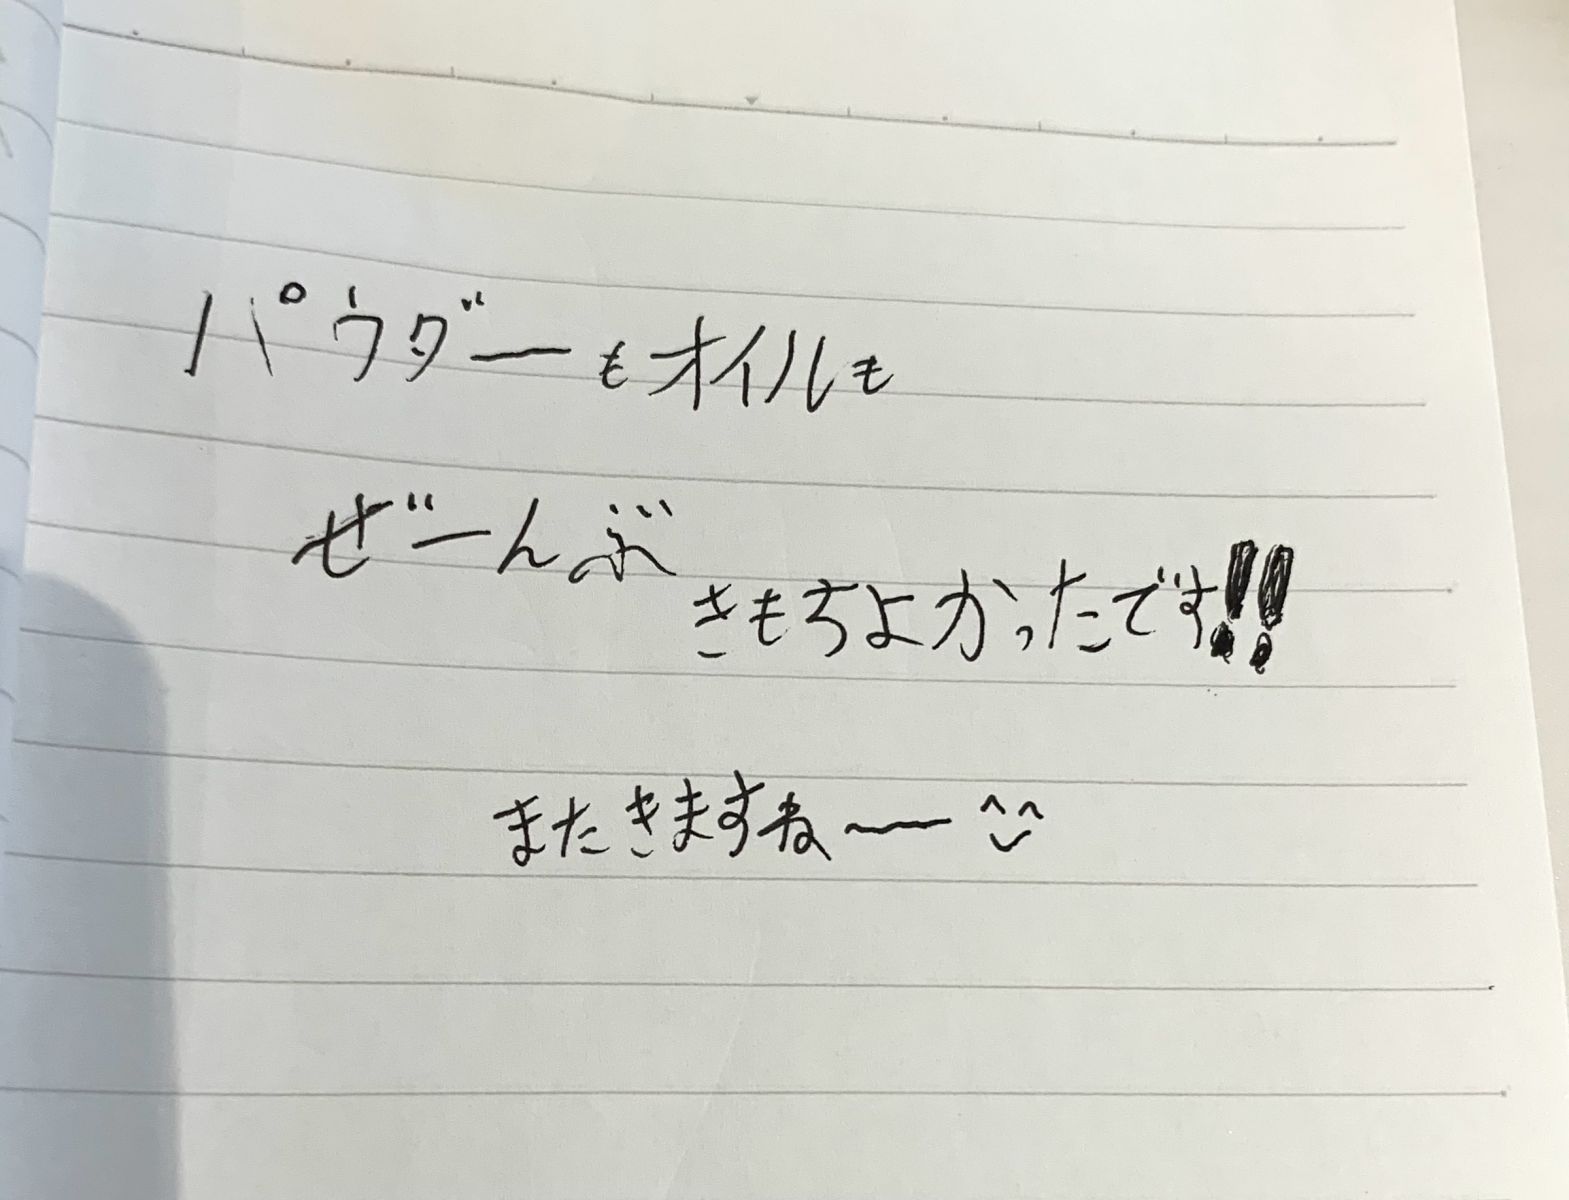 パウダーもオイルも
ぜーんぶ
きもちよかったです!!
またきますねー ^^